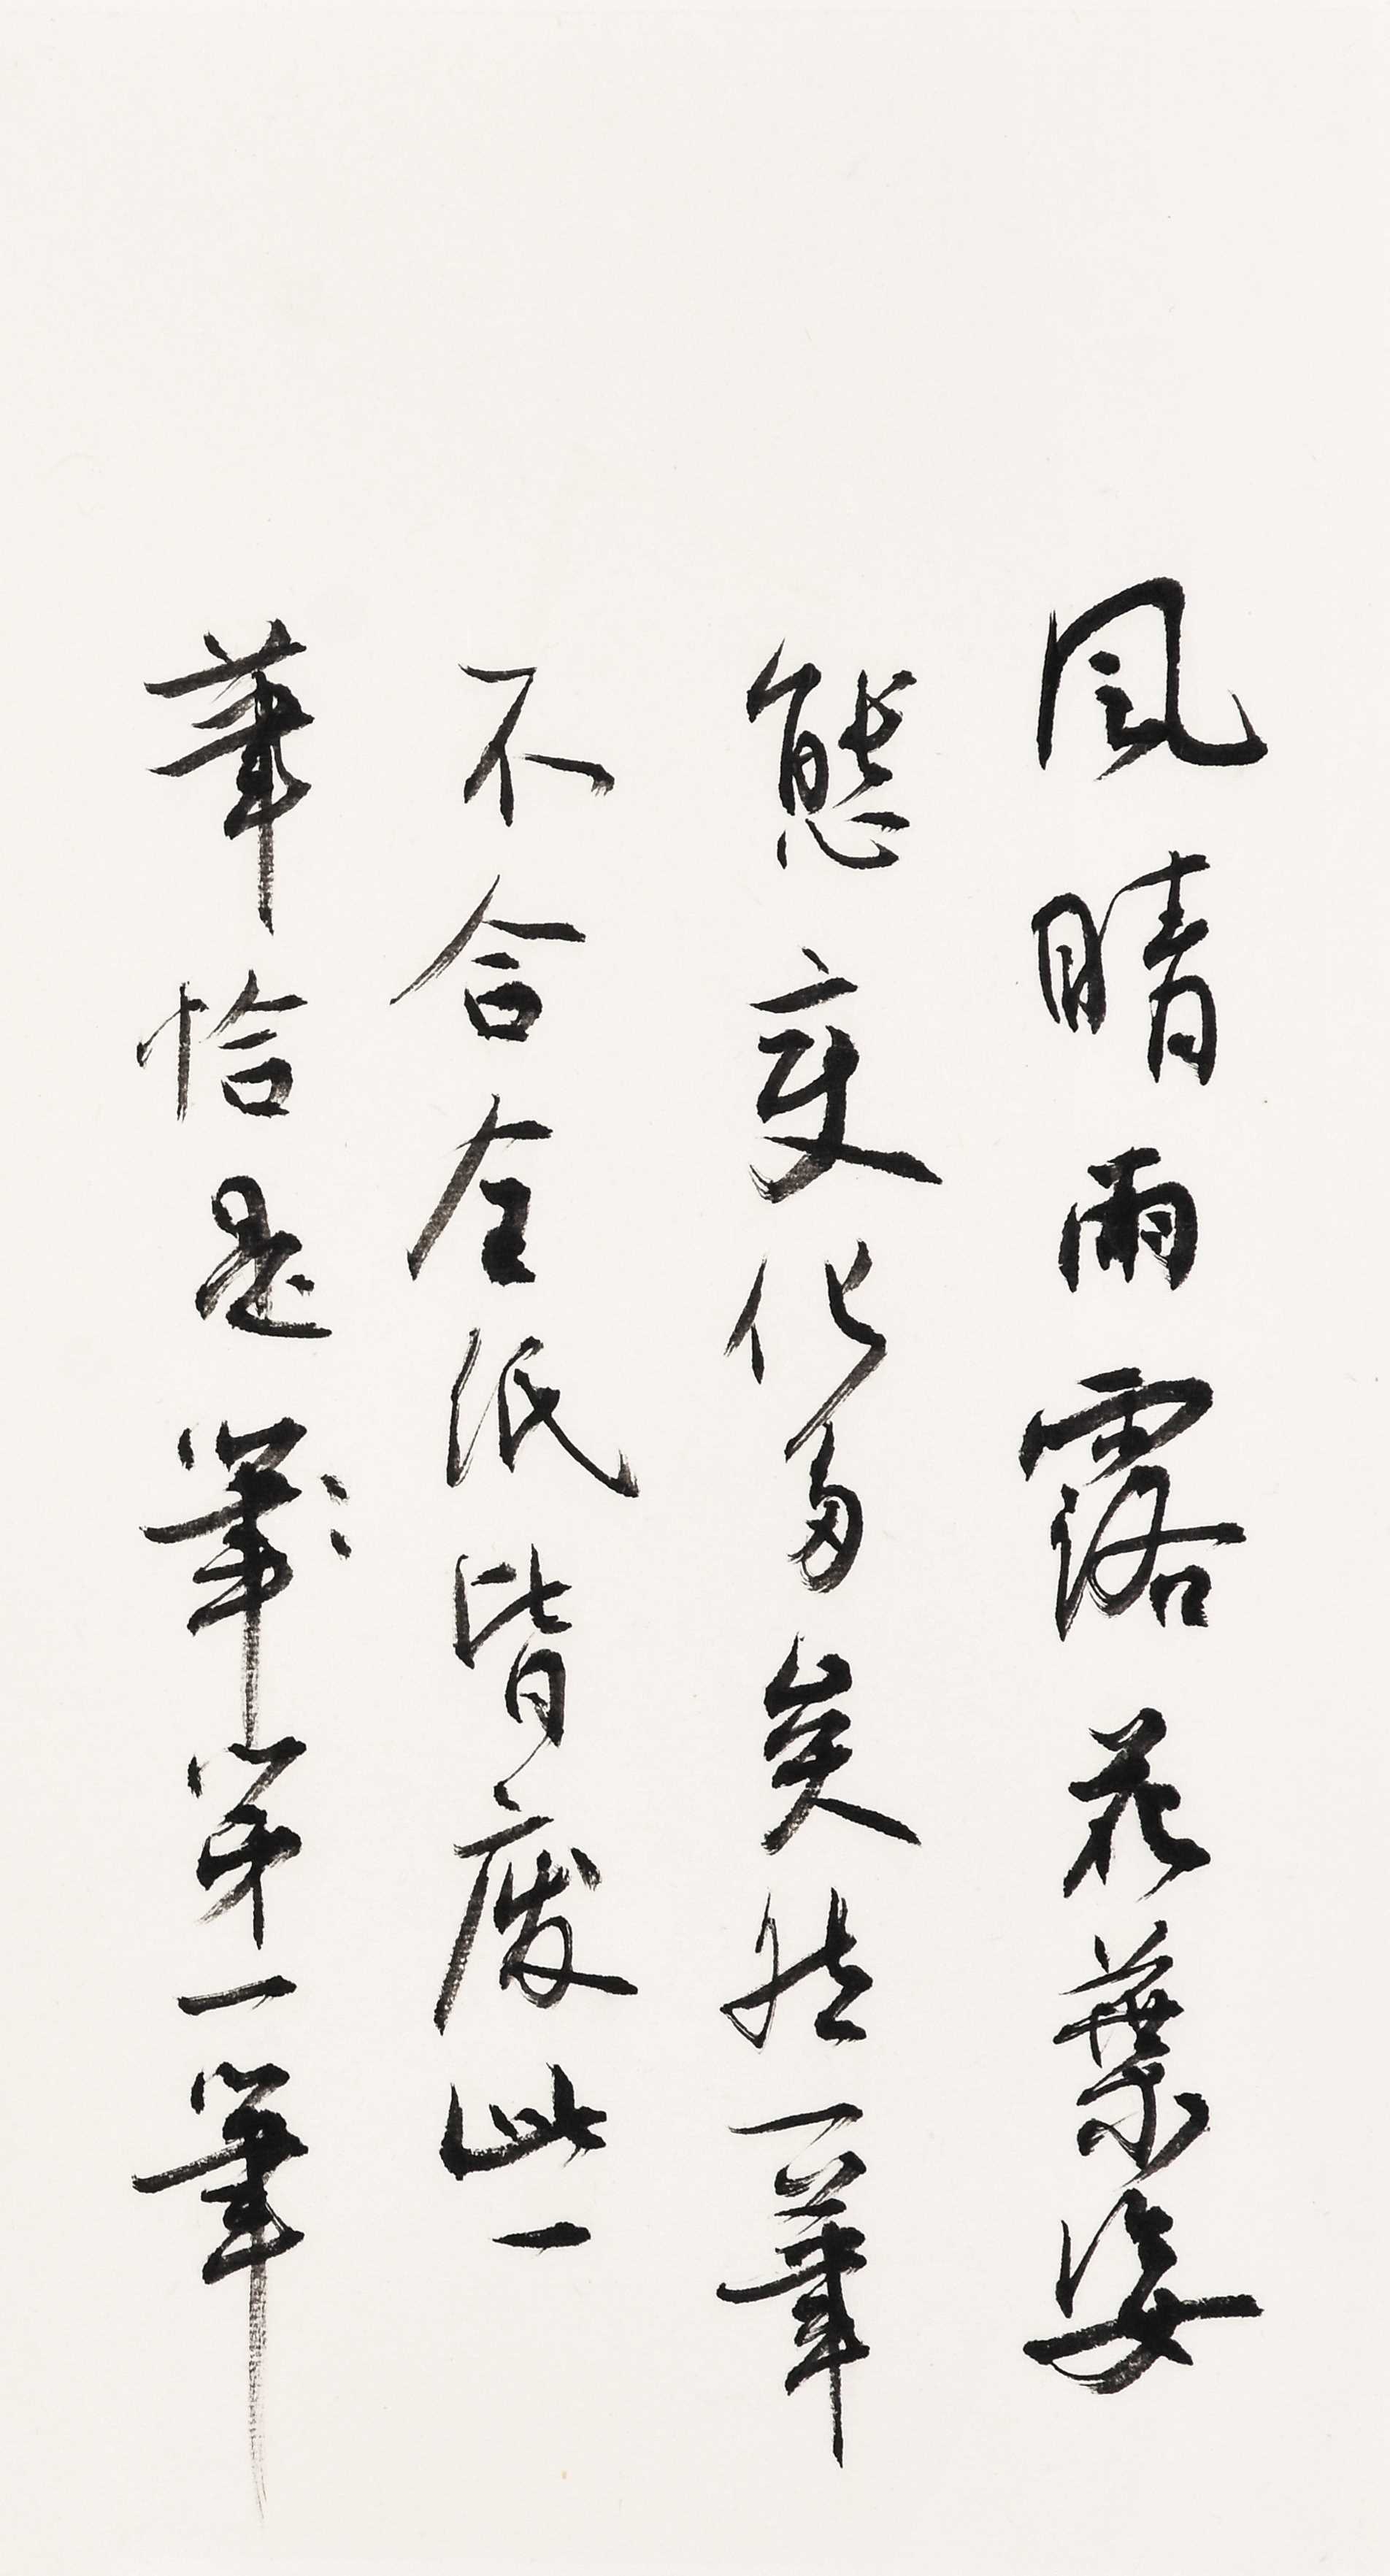 風晴雨露花葉姿
態变化多矣然一筆
不合全紙皆廢此一
筆恰是筆筆第一筆